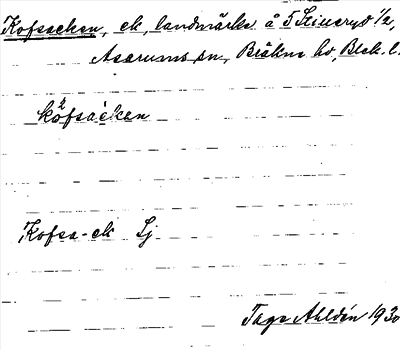 Kofsaeken, ek, landmärke å 5 Stinaryd 1/2,
Asarums sn, Bräkne hd, Blek. l.
kò2fsae`ken
Kofsa-ek Lj
Tage Ahldén 1930